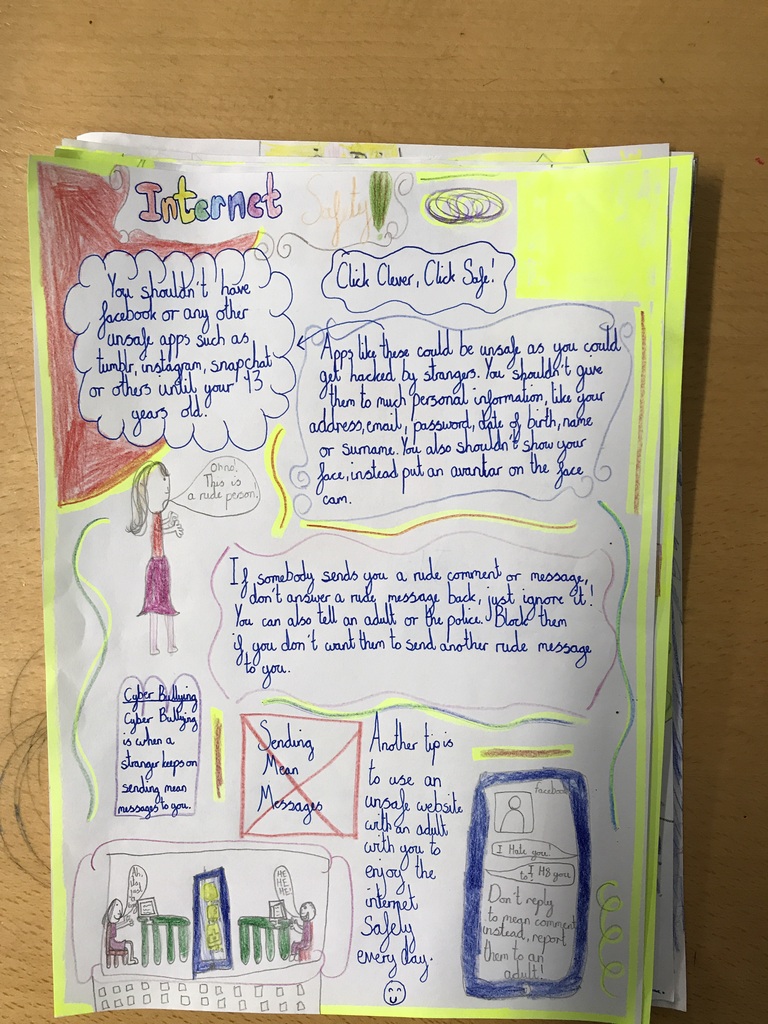 Internet Safety!
Click Clever, Click Safe!
You shouldn't have
facebook or any other
unsafe apps such as
tumblr, instagram, snapchat
or others until your 13
years old.
Apps like these could be unsafe as you could
get hacked by strangers. You shouldn't give
them to much personal information, like your
address, email, password, date of birth, name
or surname. You also shouldn't show your
face, instead put an avantar on the face
cam.
Oh no!
This is
a rude person!
If somebody sends you a rude comment or message,
don't answer a rude message back, just ignore it!
You can also tell an adult or the police. Block them
if you don't want them to send another rude message
to you.
Cyber Bullying
Cyber Bullying
is when a
stranger keeps on
sending mean
messages to you.
Sending
Mean
Messages
Another tip is
to use an
unsafe website
with an adult
with you to
enjoy the
internet
Safely
every day.
facebook
I Hate you!
I H8 you
to!
Don't reply
to mean comment
instead, report
them to an
adult!
HE
HE
HE!